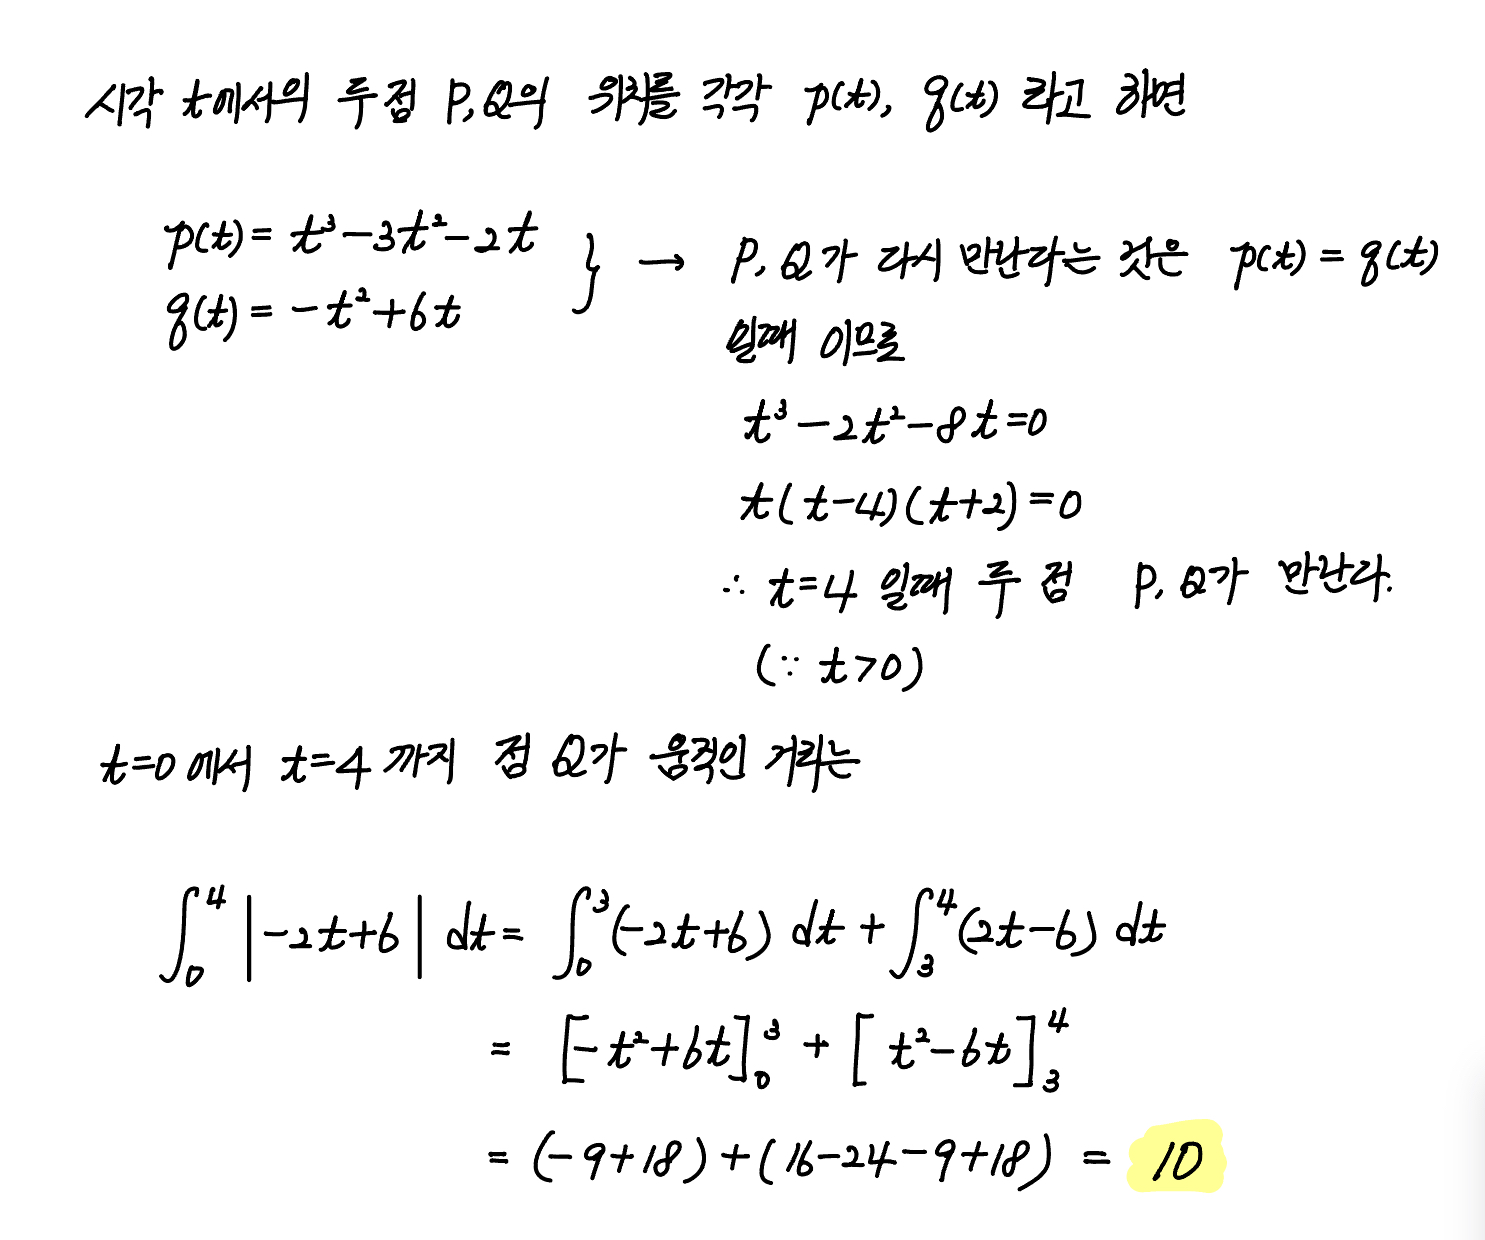 시각 t에서의 두 점 P, Q의 위치를 각각 p(t), q(t) 라고 하면
p(t) = t³-3t²-2t
q(t) = -t²+6t
} → P, Q가 다시 만난다는 것은 p(t) = q(t)
일때 이므로
t³-2t²-8t=0
t(t-4)(t+2)=0
∴ t=4 일때 두 점 P, Q가 만난다.
(∵ t>0)
t=0 에서 t=4 까지 점 Q가 움직인 거리는
∫₀⁴ |-2t+6| dt = ∫₀³ (-2t+6) dt + ∫₃⁴ (2t-6) dt
= [-t²+6t]₀³ + [t²-6t]₃⁴
= (-9+18)+(16-24-9+18) = 10